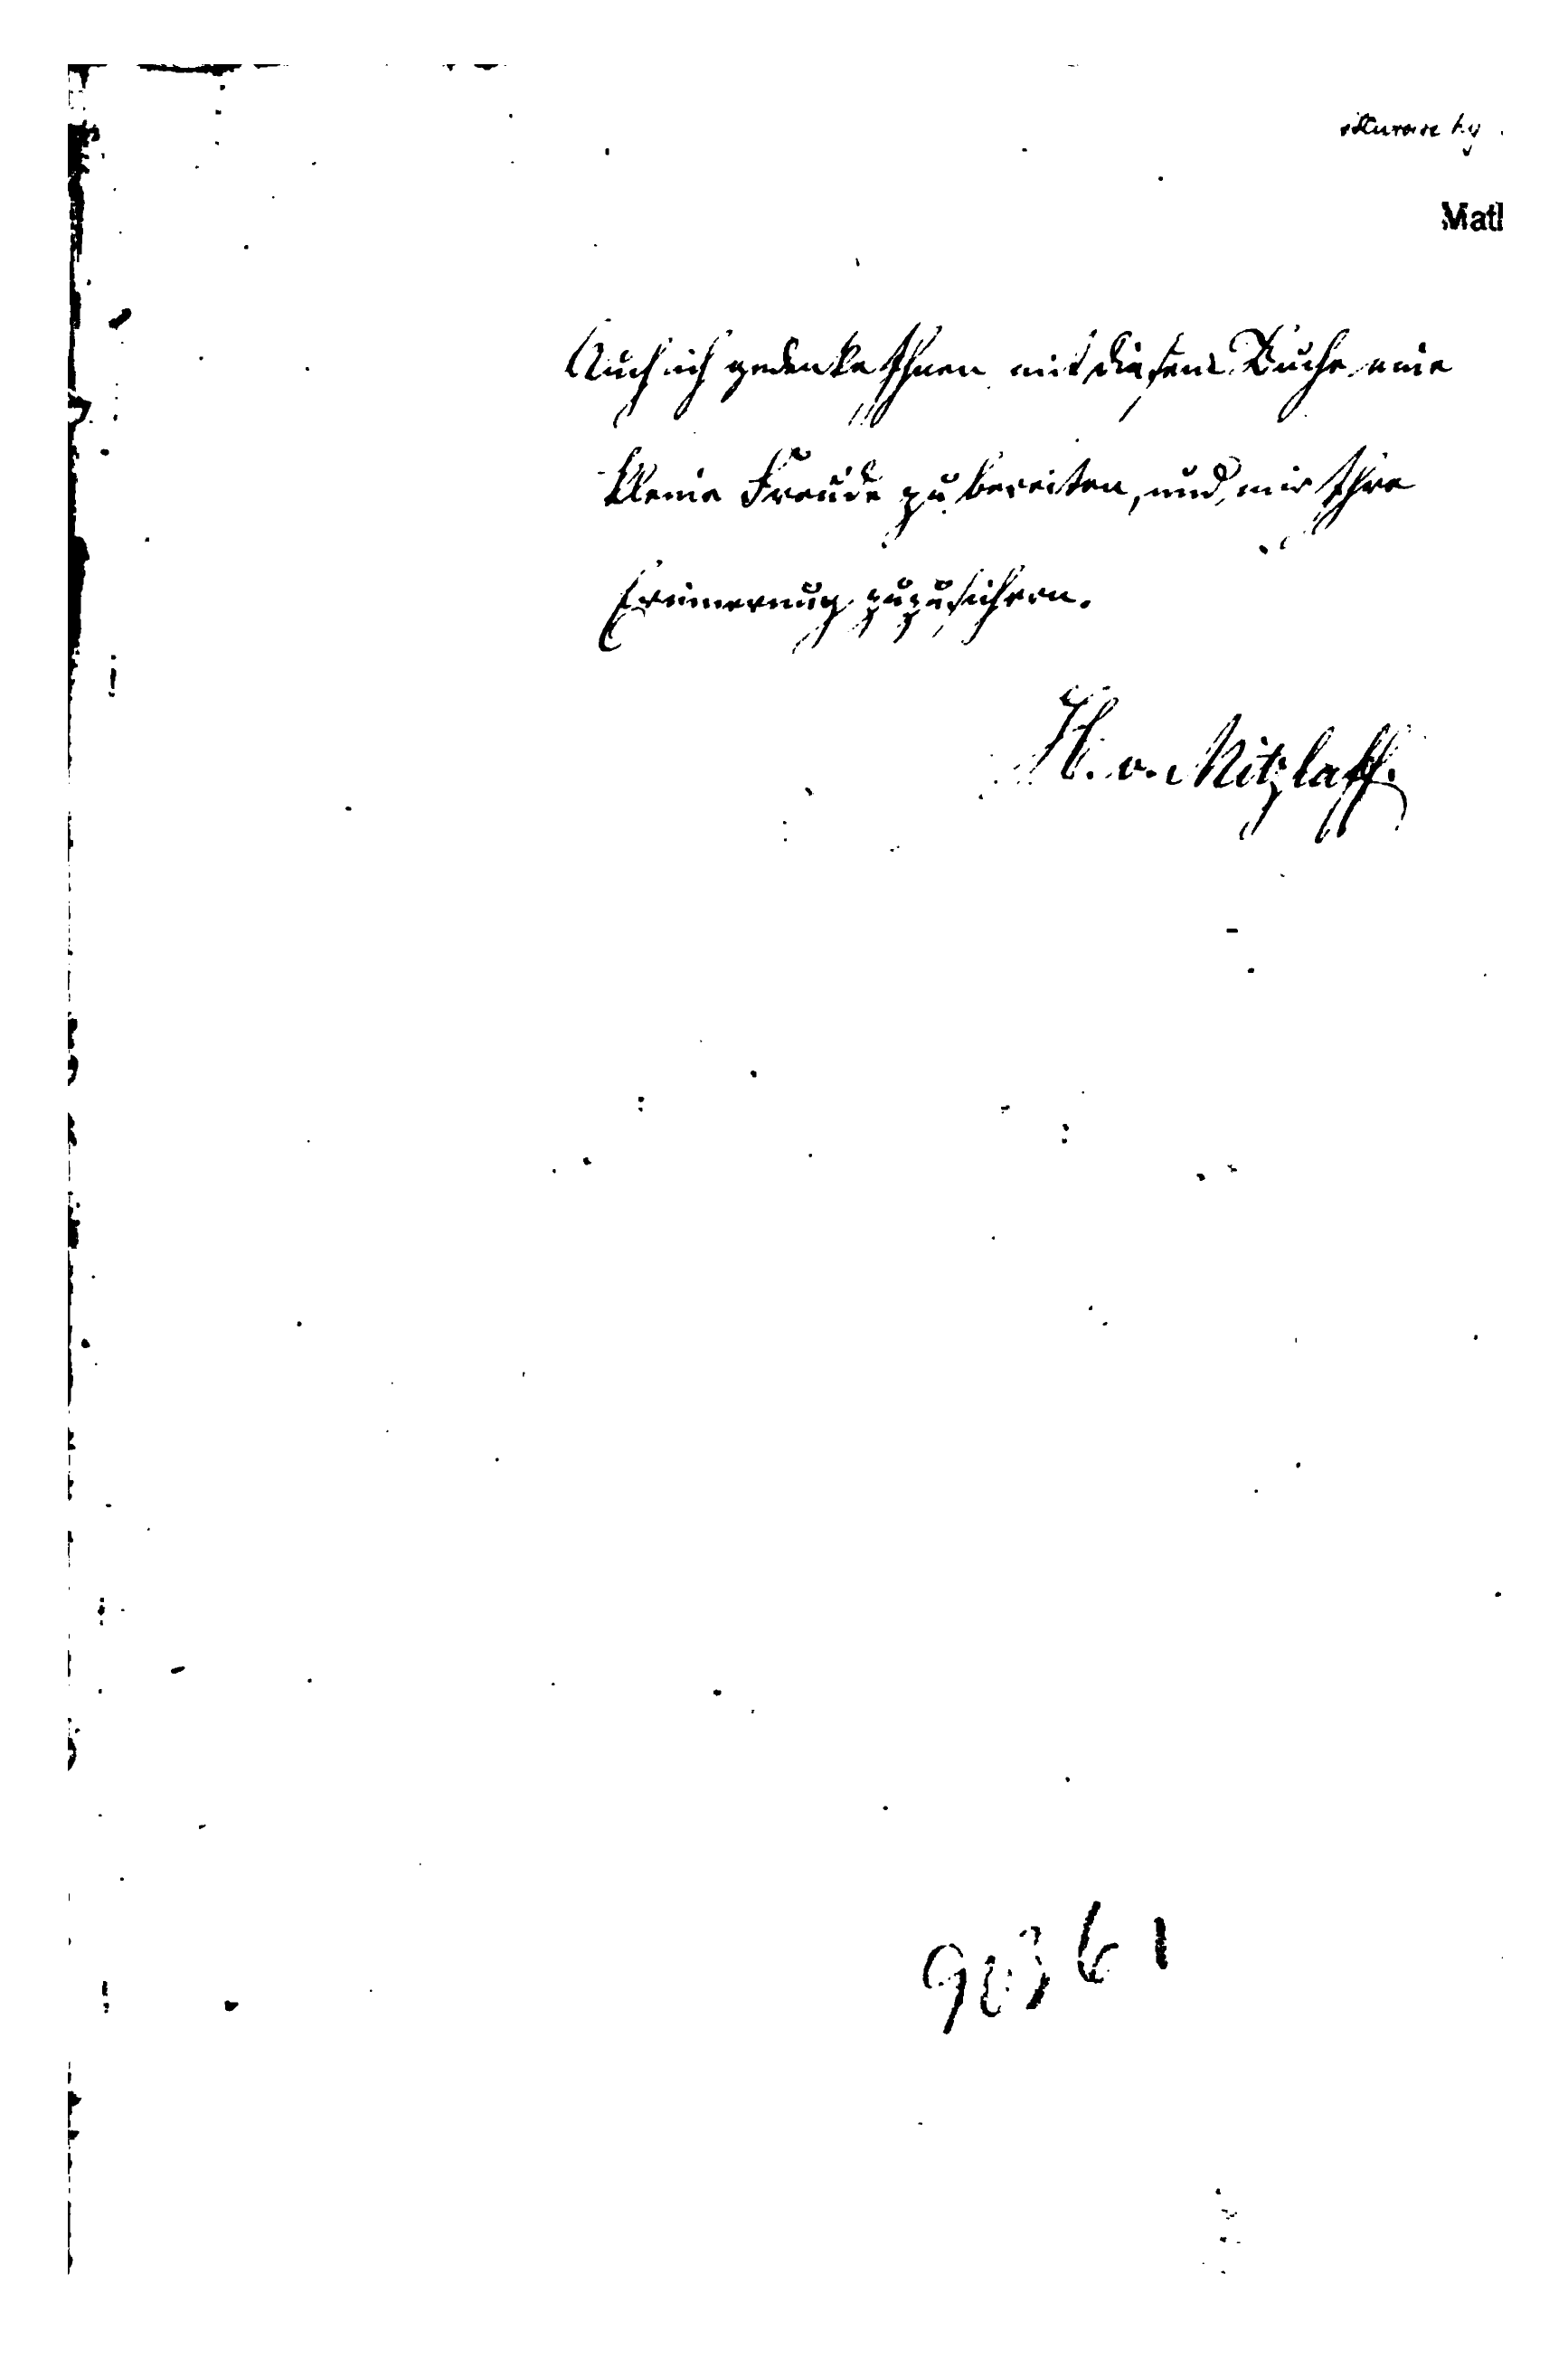 Matl
Auch ich gedenke Ihnen mit diesem Buche eine
kleine Freude zu bereiten, und mir Ihre
Erinnerung zuzusichern.
H. v. Mitzlaff.
90361